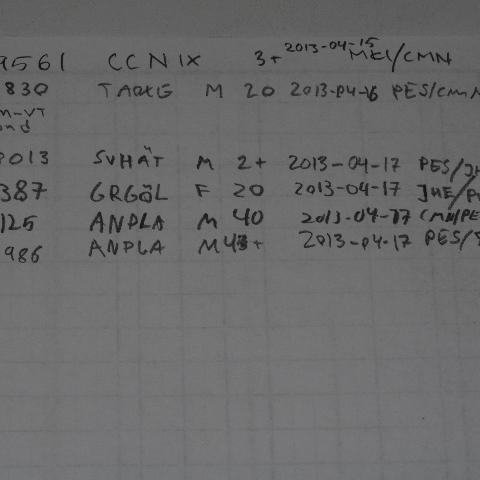 9561 CCNIX 3+ 2013-04-15 MKI/CMN
830 TABKG M 20 2013-04-16 PES/CMN
m-VT
ond
9013 SVHÄT M 2+ 2013-04-17 PES/JH
387 GRGÖL F 20 2013-04-17 JHE/P
125 ANPLA M 40 2013-04-17 CMN/PE
986 ANPLA M 43+ 2013-04-17 PES/